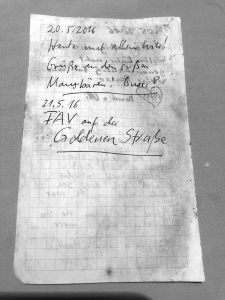 20.5.2016
Heute mal allein hier!
Grüße an den süßen
Mausbären.
21.5.16
FAV auf der
Goldenen Straße